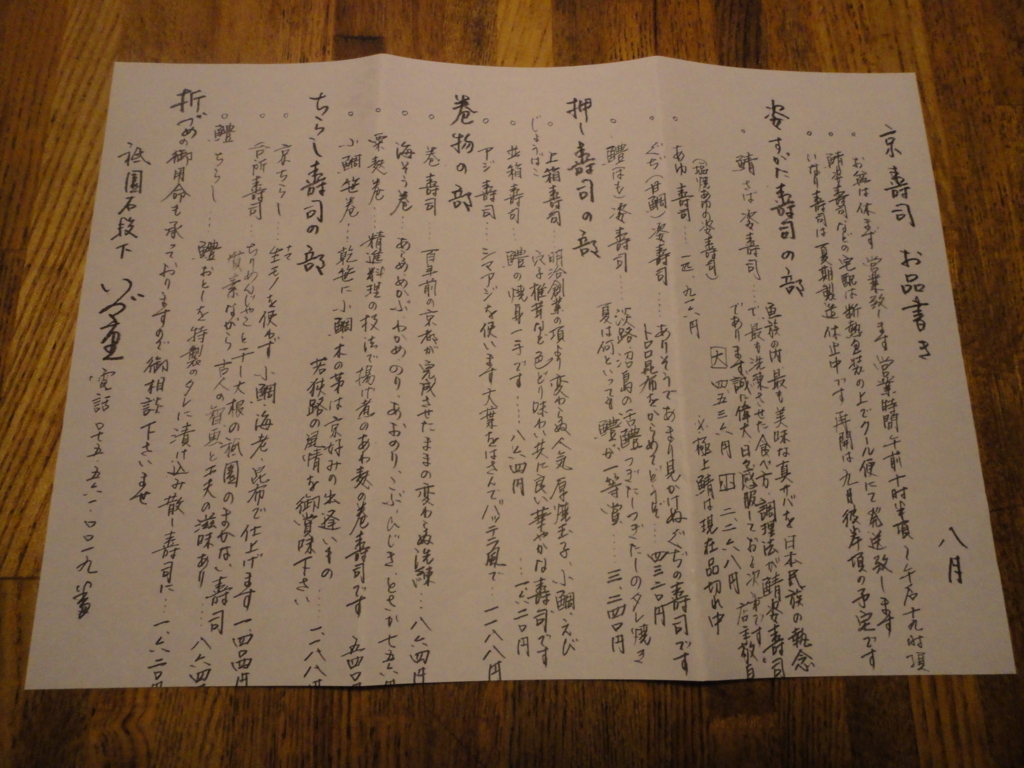 八月
京寿司 お品書き
。お盆は休まず営業致します 営業時間 午前十時半頃〜午后十九時頃
。鯖姿寿司などの宅配は断熱包装の上でクール便にて発送致します
。いなり寿司は夏期製造休止中です 再開は九月彼岸頃の予定です
姿すがた寿司の部
。鯖さば姿寿司……魚族の内最も美味な真サバを日本民族の執念
で最も洗葉させた食べ方、調理法が鯖姿寿司
であります誠に偉大 日々感服しておる次第です 店主敬白
大 四五三六円 小 二二六八円
※極上鯖は現在品切れ中
(塩焼あゆの姿寿司)
。あゆ寿司……一匹、九一八円
。ぐぢ(甘鯛)姿寿司……ありそうであまり見かけぬぐぢの寿司です
トロロ昆布をからめてどうぞ……四三二〇円
。鱧(はも)姿寿司……淡路沼島の活鱧 つぎたしつぎたしのタレ焼き
夏は何といっても鱧が一等賞……三、二四〇円
押し寿司の部
。上箱寿司……明治創業の頃より変わらぬ人気 厚焼玉子、小鯛、えび
じょうはこ
穴子、椎茸など色どり味わい共に良い華やかな寿司です
……一、六二〇円
。並箱寿司……鱧の焼身一手です……八六四円
。アジ寿司……シマアジを使います大葉をはさんでバッテラ風で……一、一八八円
巻物の部
。巻寿司……百年前の京都が完成させたままの変わらぬ洗練……八六四円
。海そう巻……あらめ、めかぶ、わかめ、のり、あおのり、こぶ、ひじき、とさか 七五六円
。粟麩巻……精進料理の技法で揚げ煮のあわ麩の巻寿司です 五四〇円
。小鯛笹巻……乾笹に小鯛、木の芽は京好みの出逢いもの
若狭路の風情を御賞味下さい……一、一八八円
ちらし寿司の部
。京ちらし……生モノを使わず小鯛、海老、昆布で仕上げます 一四〇四円
。台所寿司……ちりめんじゃこと干し大根の祇園のまかない寿司
質素ながら古人の智恵と工夫の滋味あり……八六四
。鱧ちらし……鱧おとしを特製のタレに漬け込み散し寿司に……一、六二〇円
折づめの御用命も承っておりますので御相談下さいませ
祇園石段下 いづ重 電話 〇七五、五六一、〇〇一九番